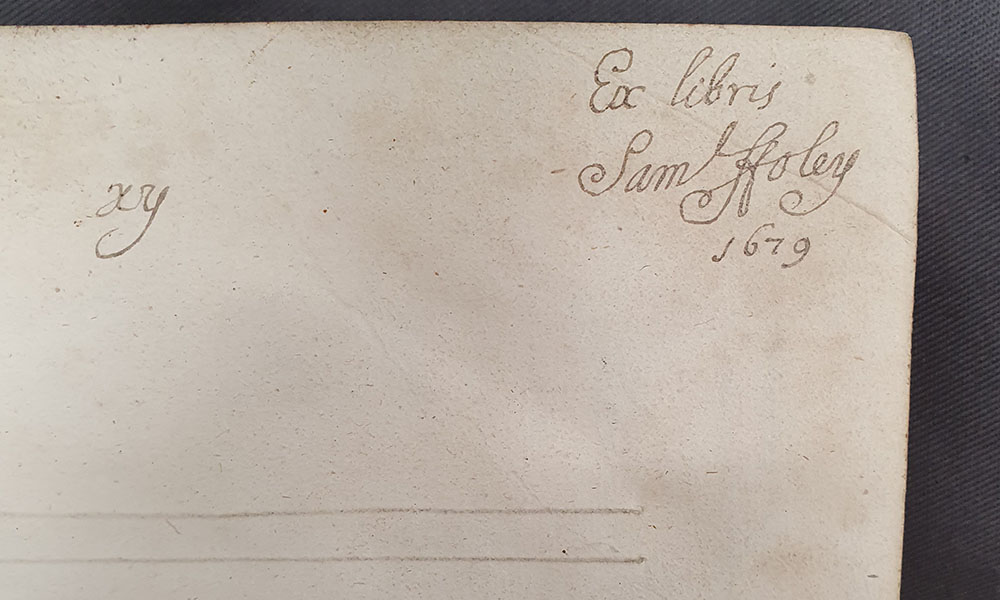 Ex libris
Saml ffoley
1679
xy